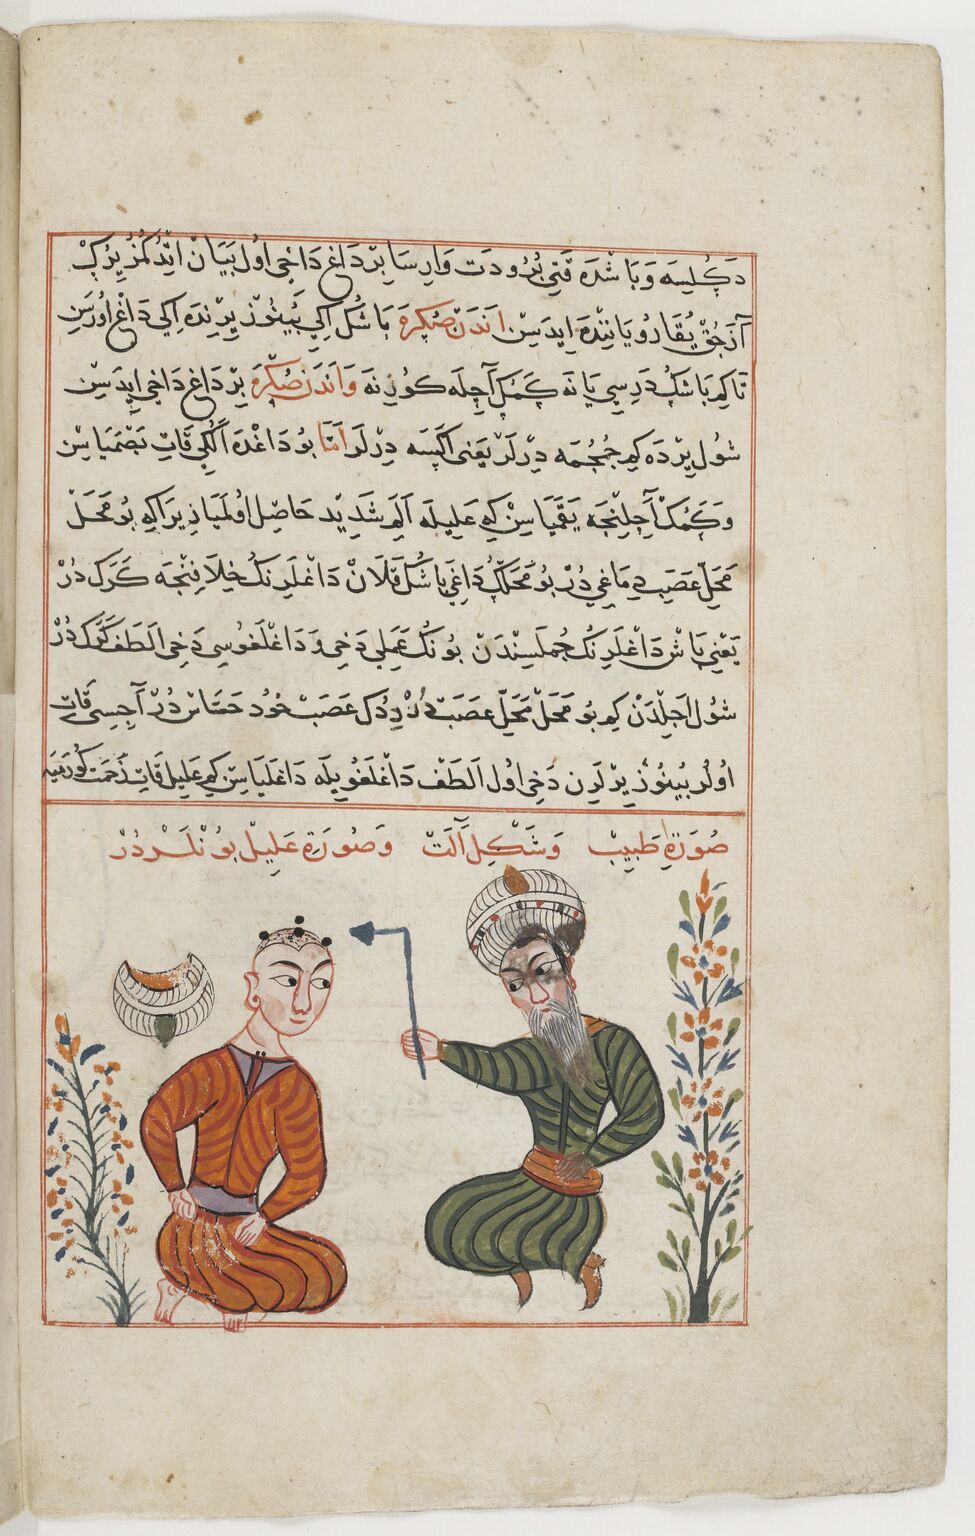 دكلسه و باشده قتی برودت وارسا بر داغ داخی اول بیان ایتدكمز یرك
آزجق یقارو یاننده ایدەسن اندن صكره باشك اكی بینوز یرنده اكی داغ اورەسن
تا كم باشك درسی یانه كمك آچله كورنه و اندن صكره بر داغ داخی ایدەسن
شول یرده كم جمجمه درلر یعنی اكسه درلر اما بو داغده الكی قات بصمیاسن
و كمك آچلنجه یقمیاسن كه علیله الم شدید حاصل اولمیا زیرا كه بو محل
محل عصب دماغی در بو محلك داغی باشك قلان داغلرنك خلافنجه كرك در
یعنی باش داغلرنك جملسندن بونك عملی دخی و داغلغوسی دخی الطف كرك در
شول اجلدن كم بو محل محل عصب در ددك عصب خود حساس در آجسی قات
اولر بینوز یرلرن دخی اول الطف داغلغویله داغلیاسن كم علیل قات زحمت كورمیه
صورة طبیب و شكل آلت و صورة علیل بونلر در